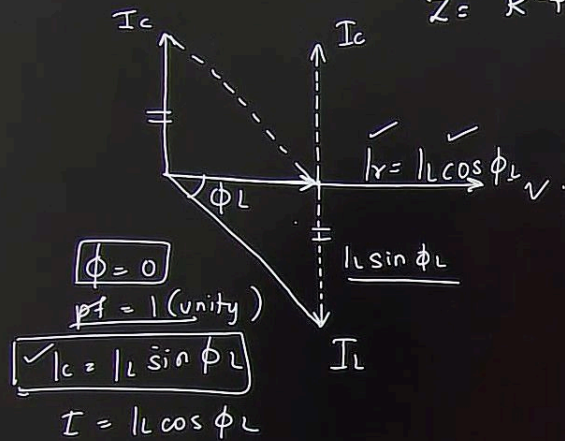 Z = R +
Ic
Ic
Ir = IL cos φL
φL
V
φ = 0
IL sin φL
pf = 1 (unity)
Ic = IL sin φL
IL
I = IL cos φL